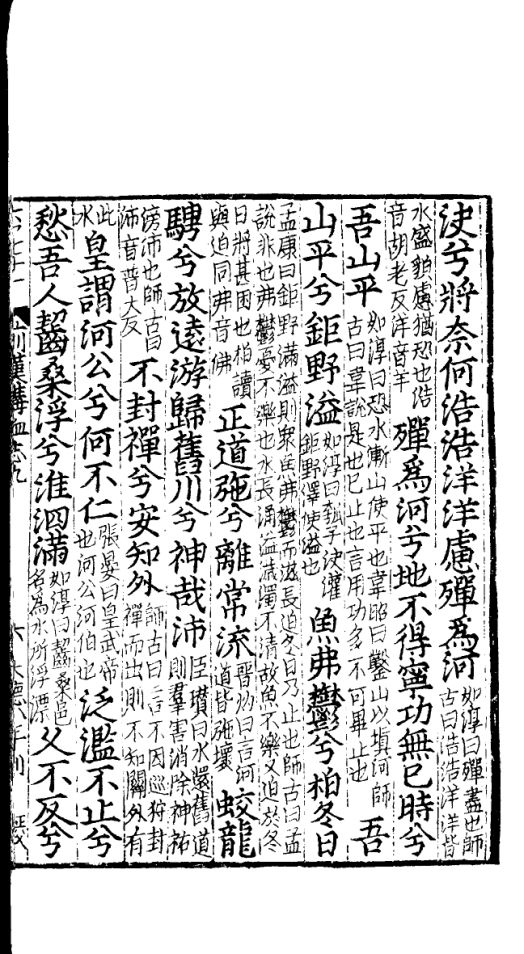 決兮將奈何浩浩洋洋慮殫爲河如淳曰殫盡也師古曰浩浩洋洋皆
水盛貌慮猶恐也浩音胡老反洋音羊殫爲河兮地不得寧功無已時兮
吾山平如淳曰恐水漸山使平也韋昭曰鑿山以填河師古曰韋說是也已止也言用功多不可畢止也吾
山平兮鉅野溢如淳曰瓠子決灌鉅野澤使溢也魚弗鬱兮柏冬日
孟康曰鉅野滿溢則衆魚弗鬱而滋長迫冬日乃止也師古曰孟說非也弗鬱憂不樂也水長涌溢濊濁不清故魚不樂又迫於冬
日將甚困也柏讀與迫同弗音佛正道弛兮離常流晉灼曰言河道皆弛壞蛟龍
騁兮放遠游歸舊川兮神哉沛臣瓚曰水還舊道則羣害消除神祐
滂沛也師古曰沛音普大反不封禪兮安知外師古曰言不因巡狩封禪而出則不知關外有
此水皇謂河公兮何不仁張晏曰皇武帝也河公河伯也泛濫不止兮
愁吾人齧桑浮兮淮泗滿如淳曰齧桑邑名爲水所浮漂久不反兮